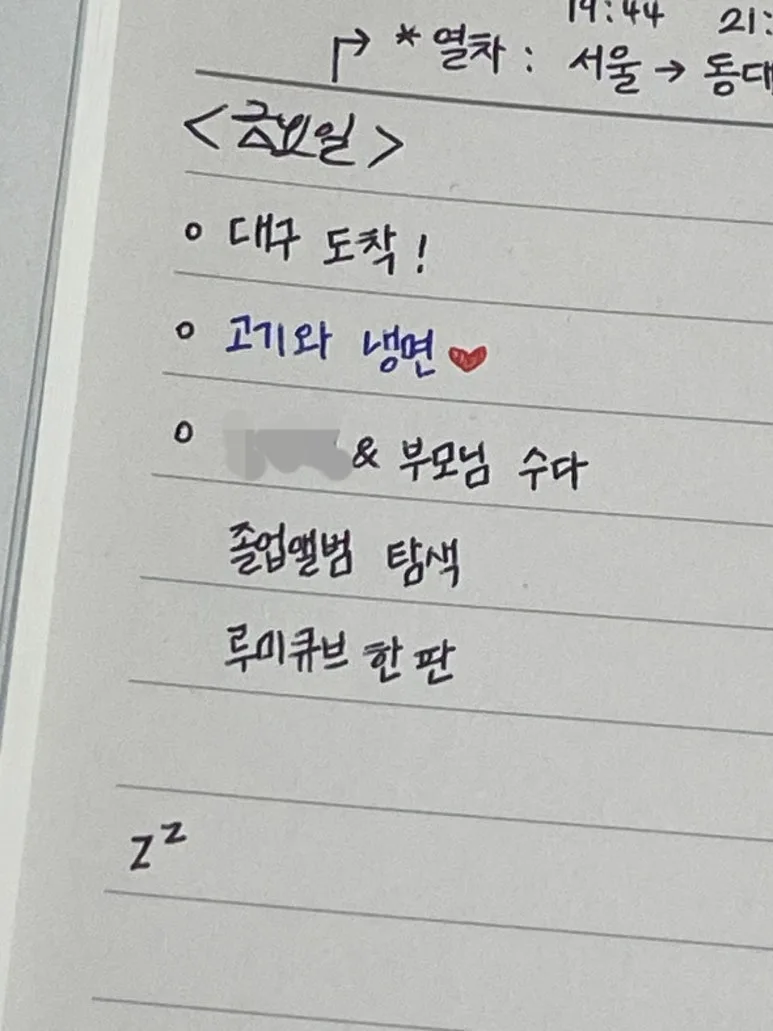 19:44 21:
* 열차 : 서울 → 동대
<금요일>
o 대구 도착!
o 고기와 냉면♥
o & 부모님 수다
졸업앨범 탐색
루미큐브 한 판
zz